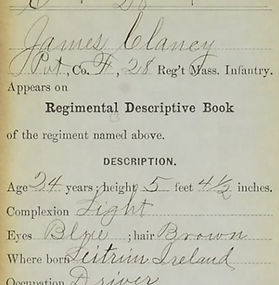 C 28
James Clancy
Pvt, Co. H, 28 Reg't Mass. Infantry.
Appears on
Regimental Descriptive Book
of the regiment named above.
DESCRIPTION.
Age 24 years; height 5 feet 4½ inches.
Complexion Light
Eyes Blue; hair Brown
Where born Leitrim Ireland
Occupation Driver